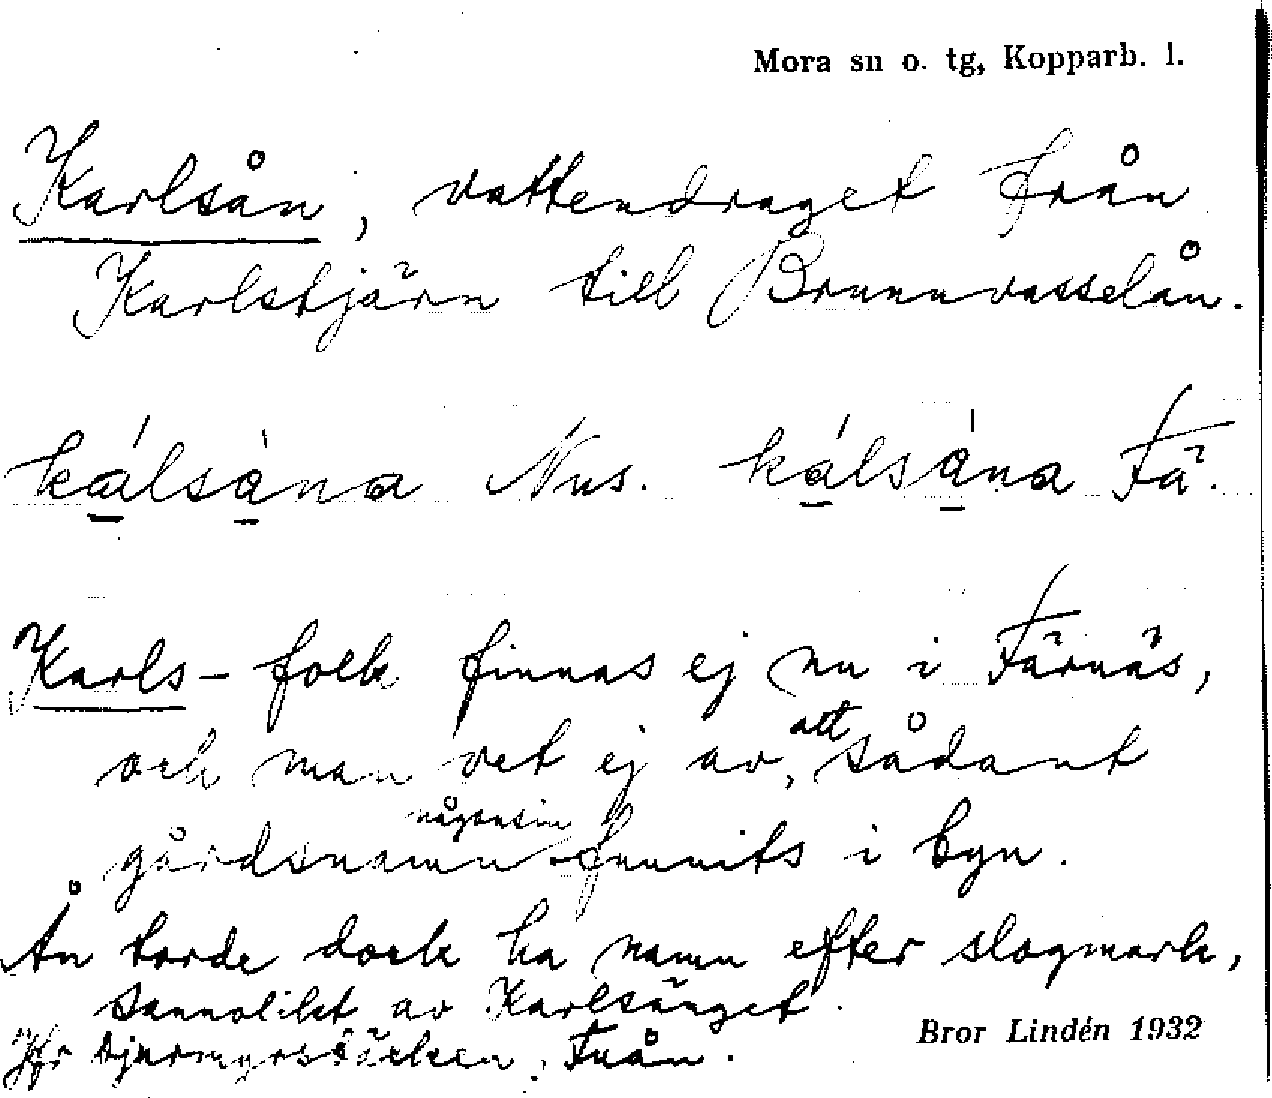 Mora sn o. tg, Kopparb. l.
Karlsån, vattendraget från
Karlstjärn till Brunnvasselån.
kálsàna Nus. kálsána Fä.
Karls- folk finnas ej nu i Färnäs,
och man vet ej av, att sådant
gårdsnamn någonsin funnits i byn.
Ån torde dock ha namn efter slogmark,
sannolikt av Karlsänget.
Jfr
Bror Lindén 1932